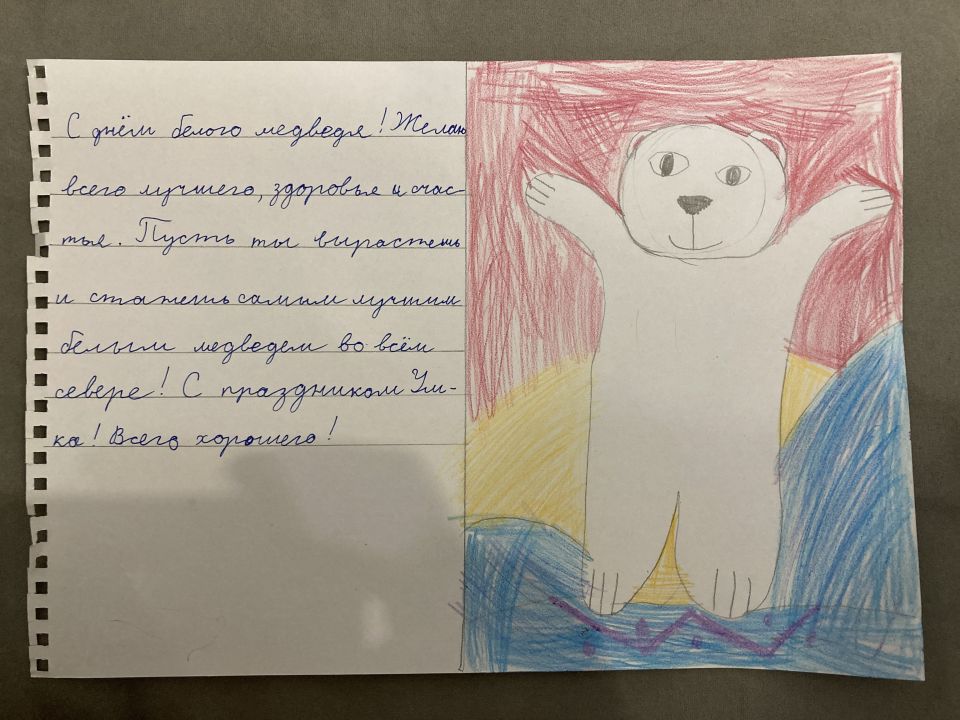 С днём белого медведя! Желаю
всего лучшего, здоровья и счас-
тья. Пусть ты вырастешь
и станешь самым лучшим
белым медведем во всём
севере! С праздником Ум-
ка! Всего хорошего!